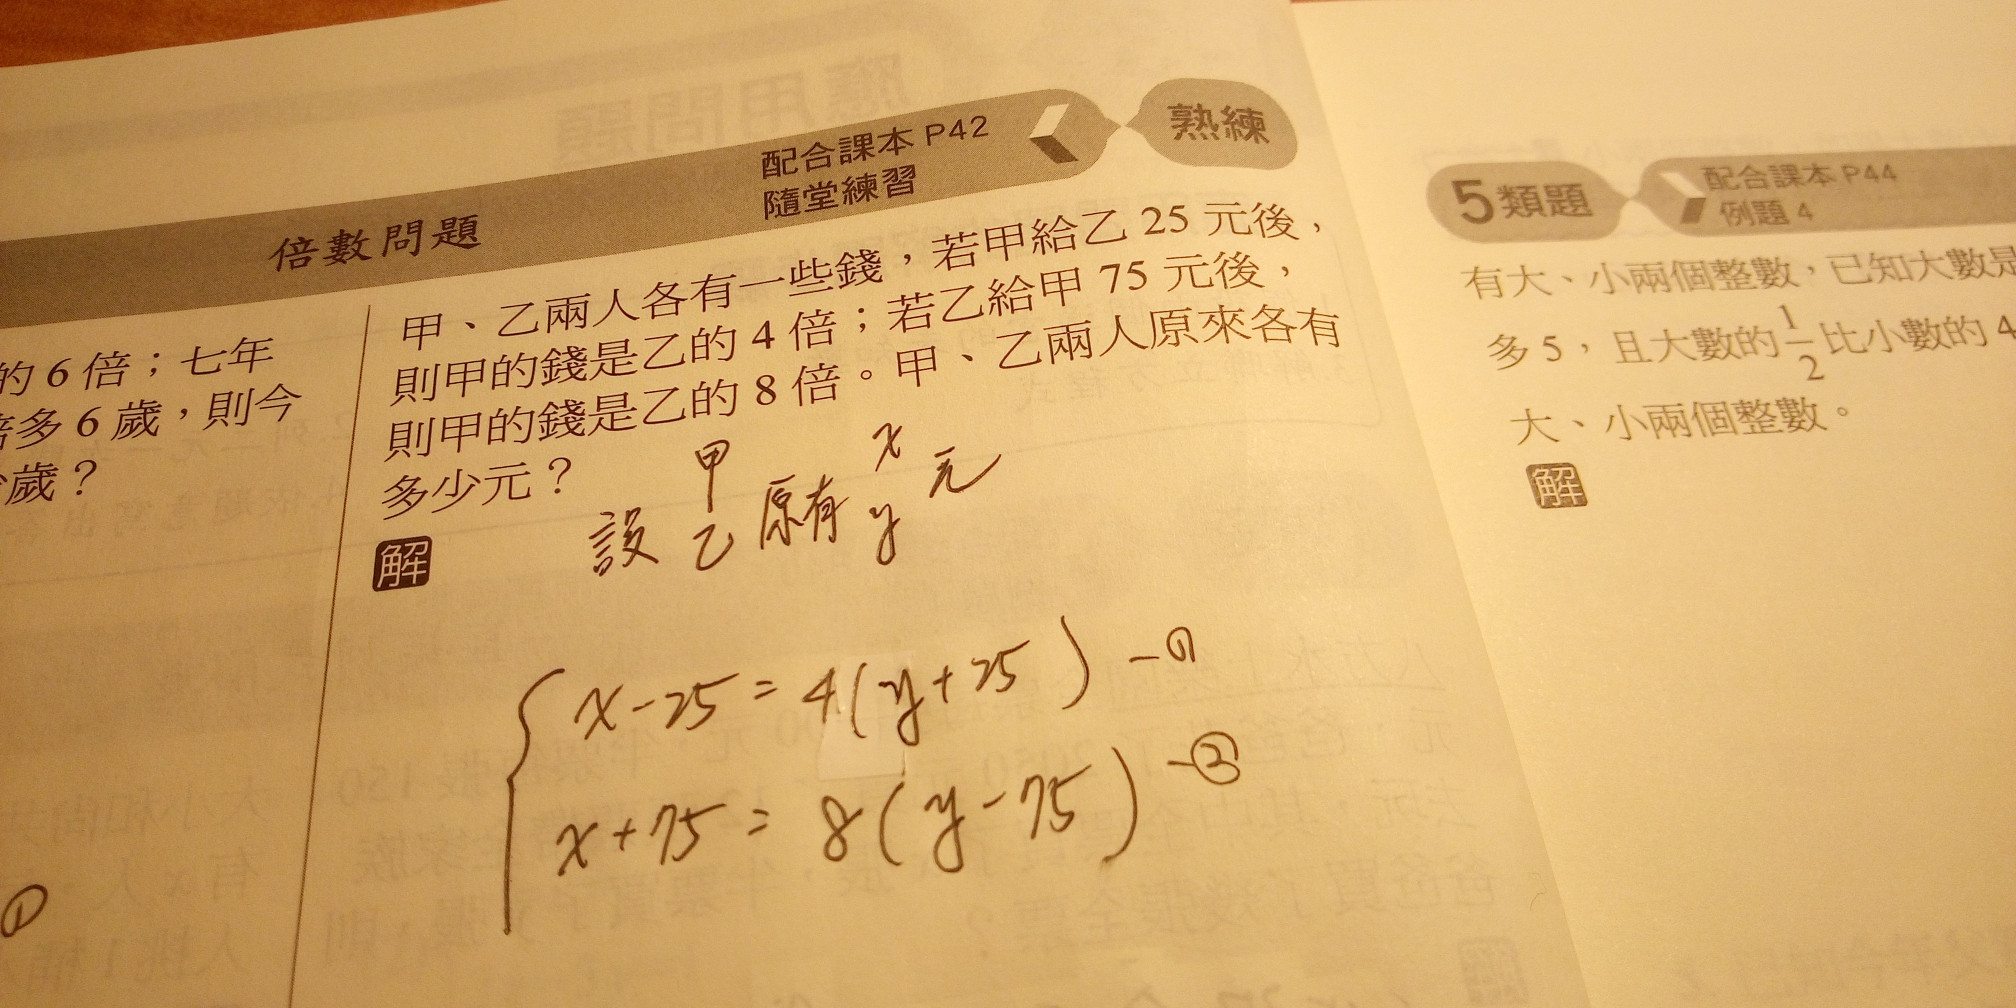 倍數問題
配合課本 P42
隨堂練習
熟練
的 6 倍；七年
倍多 6 歲，則今
歲？
①
甲、乙兩人各有一些錢，若甲給乙 25 元後，
則甲的錢是乙的 4 倍；若乙給甲 75 元後，
則甲的錢是乙的 8 倍。甲、乙兩人原來各有
多少元？
解
設 甲 乙 原有 x y 元
x-25=4(y+25) -①
x+75=8(y-75) -②
5 類題
配合課本 P44
例題 4
有大、小兩個整數，已知大數是
多 5，且大數的 1/2 比小數的 4
大、小兩個整數。
解